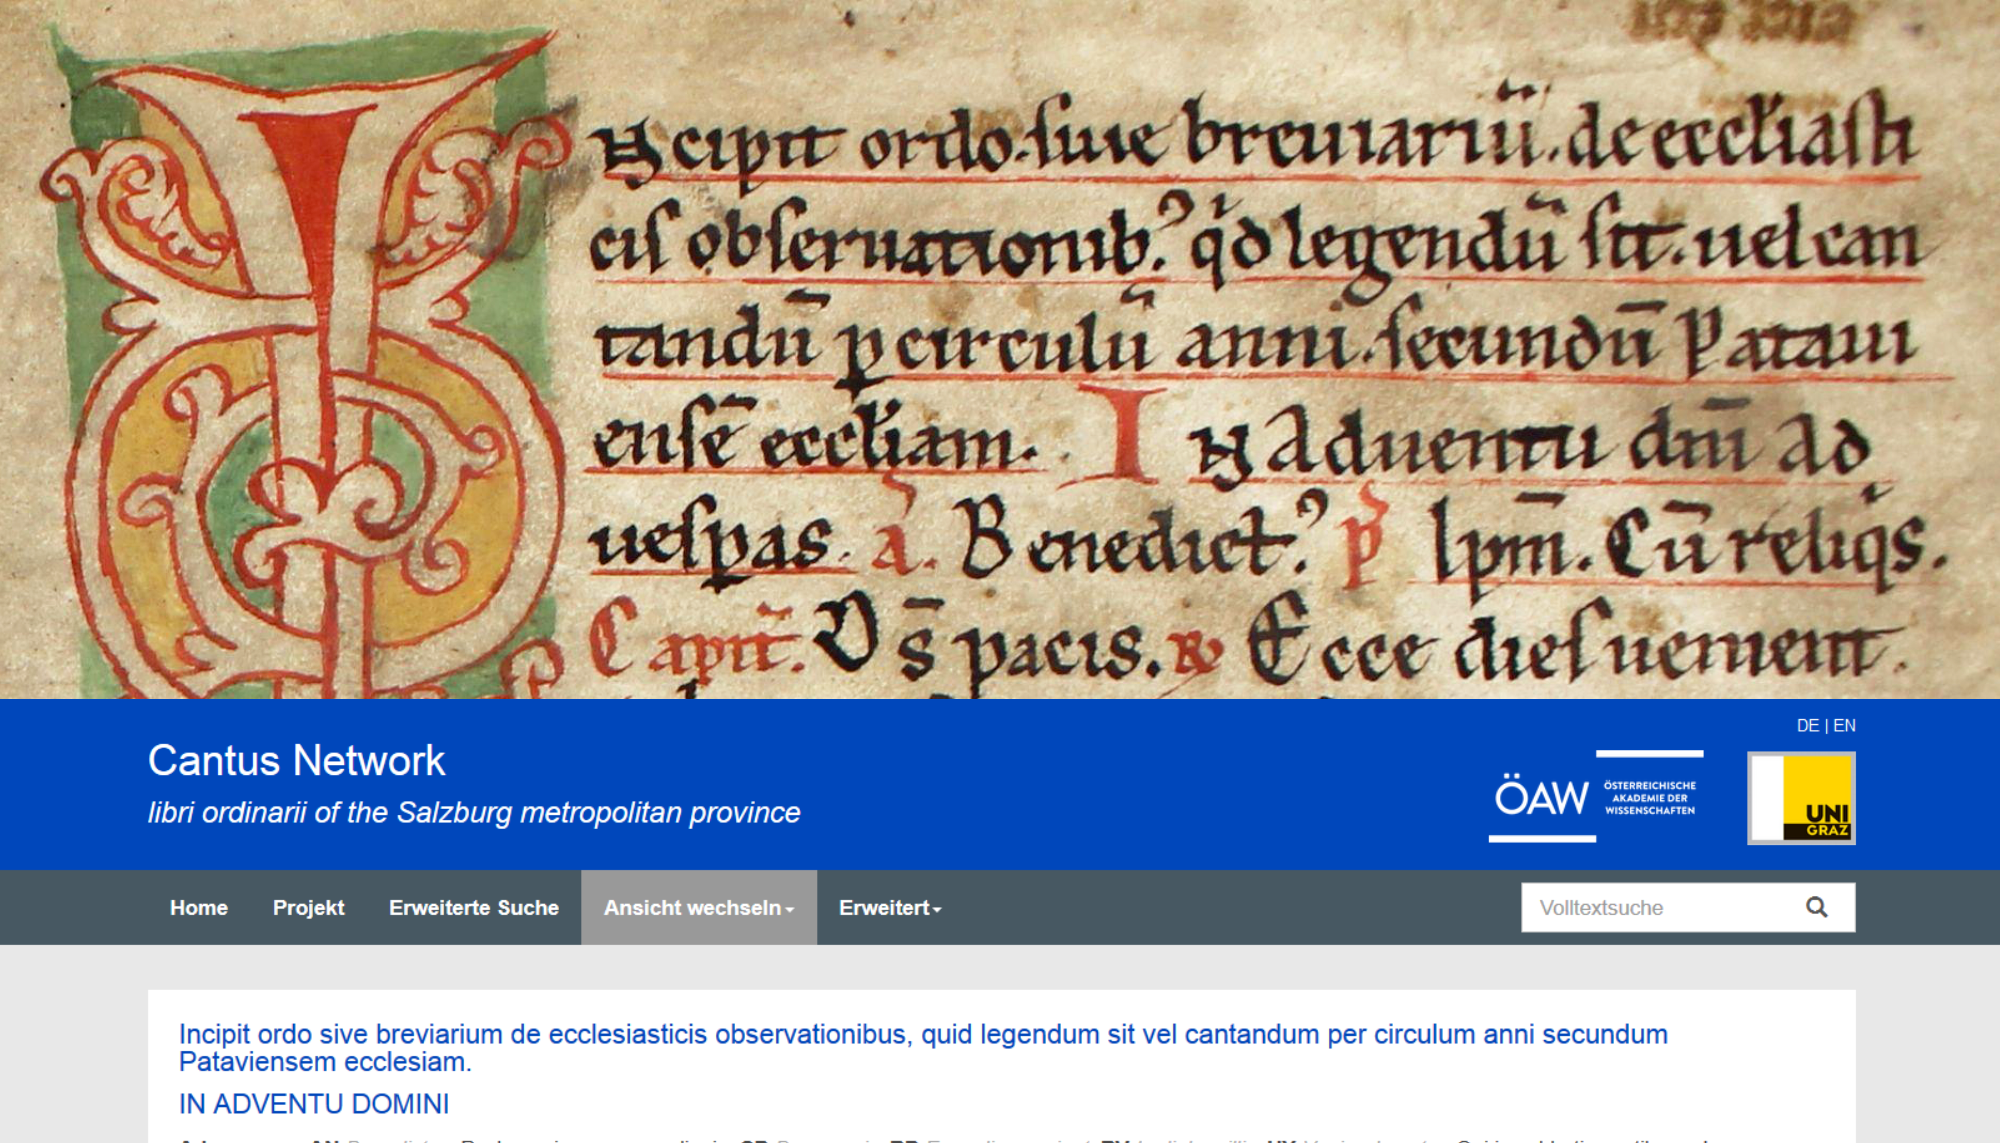 Incipit ordo. siue breuiariu̅. de eccl'iasti
cis obseruationib;᾿ qd legendu̅ sit. uel can
tandu̅ p circulu̅ anni. secundu̅ Pataui
ense̅ eccl'iam. In Aduentu dn̅i Ad
uesp̱as. a. Benedict᾿ p̱ Ipm̅. Cu̅ reliqs.
Capit̅. D̅s pacis. R Ecce dies uenient.
DE | EN
Cantus Network
libri ordinarii of the Salzburg metropolitan province
ÖAW
ÖSTERREICHISCHE
AKADEMIE DER
WISSENSCHAFTEN
UNI
GRAZ
Home Projekt Erweiterte Suche Ansicht wechseln Erweitert Volltextsuche
Incipit ordo sive breviarium de ecclesiasticis observationibus, quid legendum sit vel cantandum per circulum anni secundum
Pataviensem ecclesiam.
IN ADVENTU DOMINI